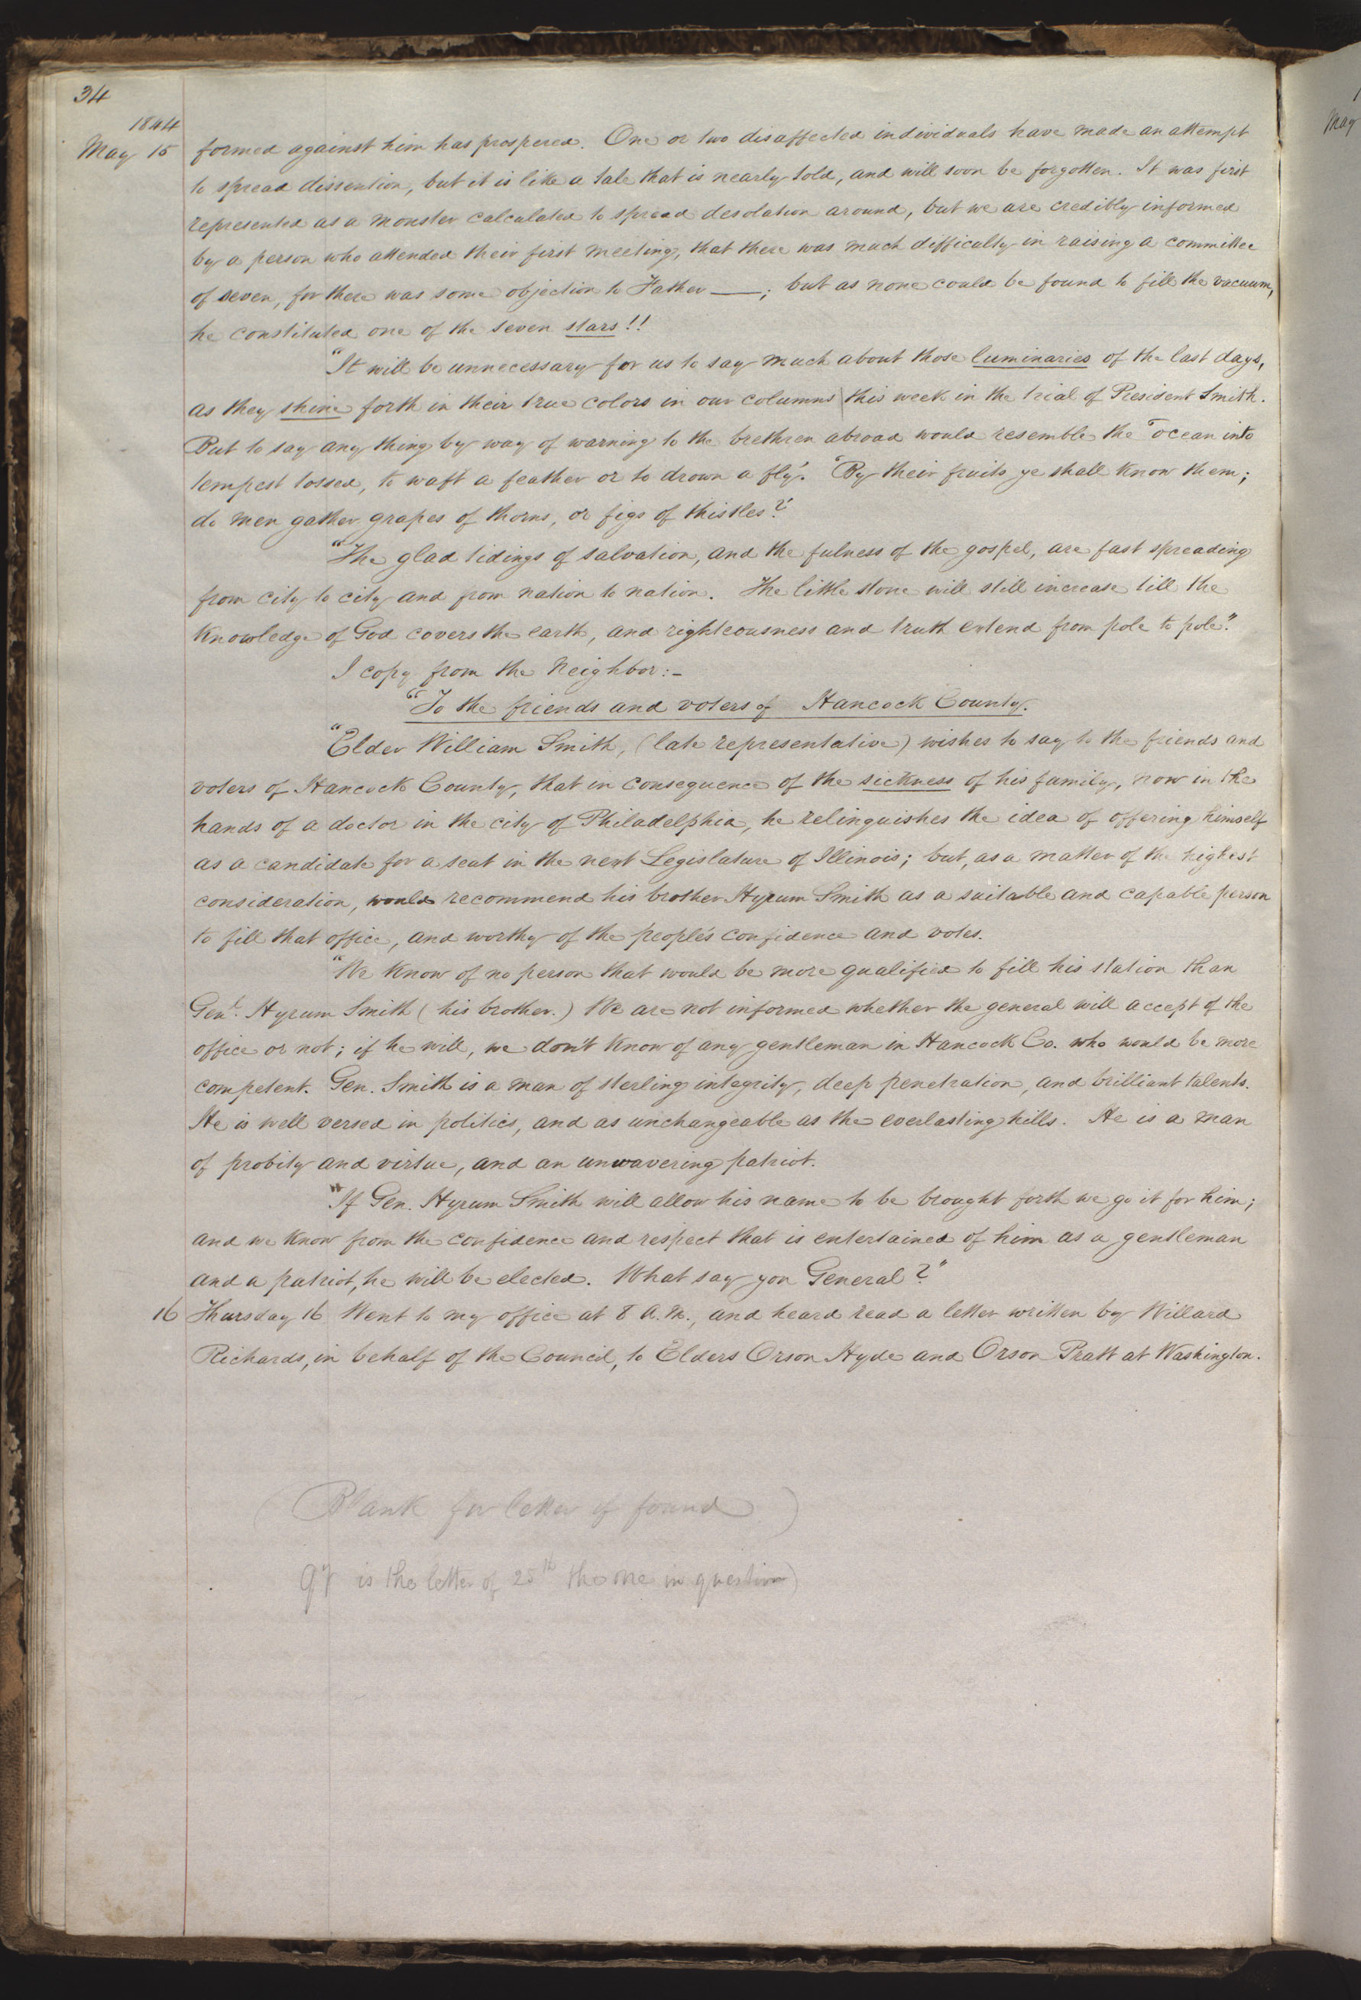 34
1844
May 15 formed against him has prospered. One or two disaffected individuals have made an attempt
to spread dissention, but it is like a tale that is nearly told, and will soon be forgotten. It was first
represented as a monster calculated to spread desolation around, but we are credibly informed
by a person who attended their first meeting, that there was much difficulty in raising a committee
of seven, for there was some objection to Father ——; but as none could be found to fill the vacuum,
he constituted one of the seven stars!!
"It will be unnecessary for us to say much about those luminaries of the last days,
as they shine forth in their true colors in our columns this week in the trial of President Smith.
But to say any thing by way of warning to the brethren abroad would resemble the "ocean into
tempest tossed, to waft a feather or to drown a fly". "By their fruits ye shall know them;
do men gather grapes of thorns, or figs of thistles?"
"The glad tidings of salvation, and the fulness of the gospel, are fast spreading
from city to city and from nation to nation. The little stone will still increase till the
knowledge of God covers the earth, and righteousness and truth extend from pole to pole."
I copy from the Neighbor:—
"To the friends and voters of Hancock County.
"Elder William Smith, (late representative) wishes to say to the friends and
voters of Hancock County, that in consequence of the sickness of his family, now in the
hands of a doctor in the city of Philadelphia, he relinquishes the idea of offering himself
as a candidate for a seat in the next Legislature of Illinois; but, as a matter of the highest
consideration, would recommend his brother Hyrum Smith as a suitable and capable person
to fill that office, and worthy of the people's confidence and votes.
"We know of no person that would be more qualified to fill his station than
Genl. Hyrum Smith (his brother.) We are not informed whether the general will accept of the
office or not; if he will, we don't know of any gentleman in Hancock Co. who would be more
competent. Gen. Smith is a man of sterling integrity, deep penetration, and brilliant talents.
He is well versed in politics, and as unchangeable as the everlasting hills. He is a man
of probity and virtue, and an unwavering patriot.
"If Gen. Hyrum Smith will allow his name to be brought forth we go it for him;
and we know from the confidence and respect that is entertained of him as a gentleman
and a patriot, he will be elected. What say you General?"
16 Thursday 16 Went to my office at 8 A.M., and heard read a letter written by Willard
Richards, in behalf of the Council, to Elders Orson Hyde and Orson Pratt at Washington.
(Blank for letter if found)
Qy is the letter of 25th the one in question)
May